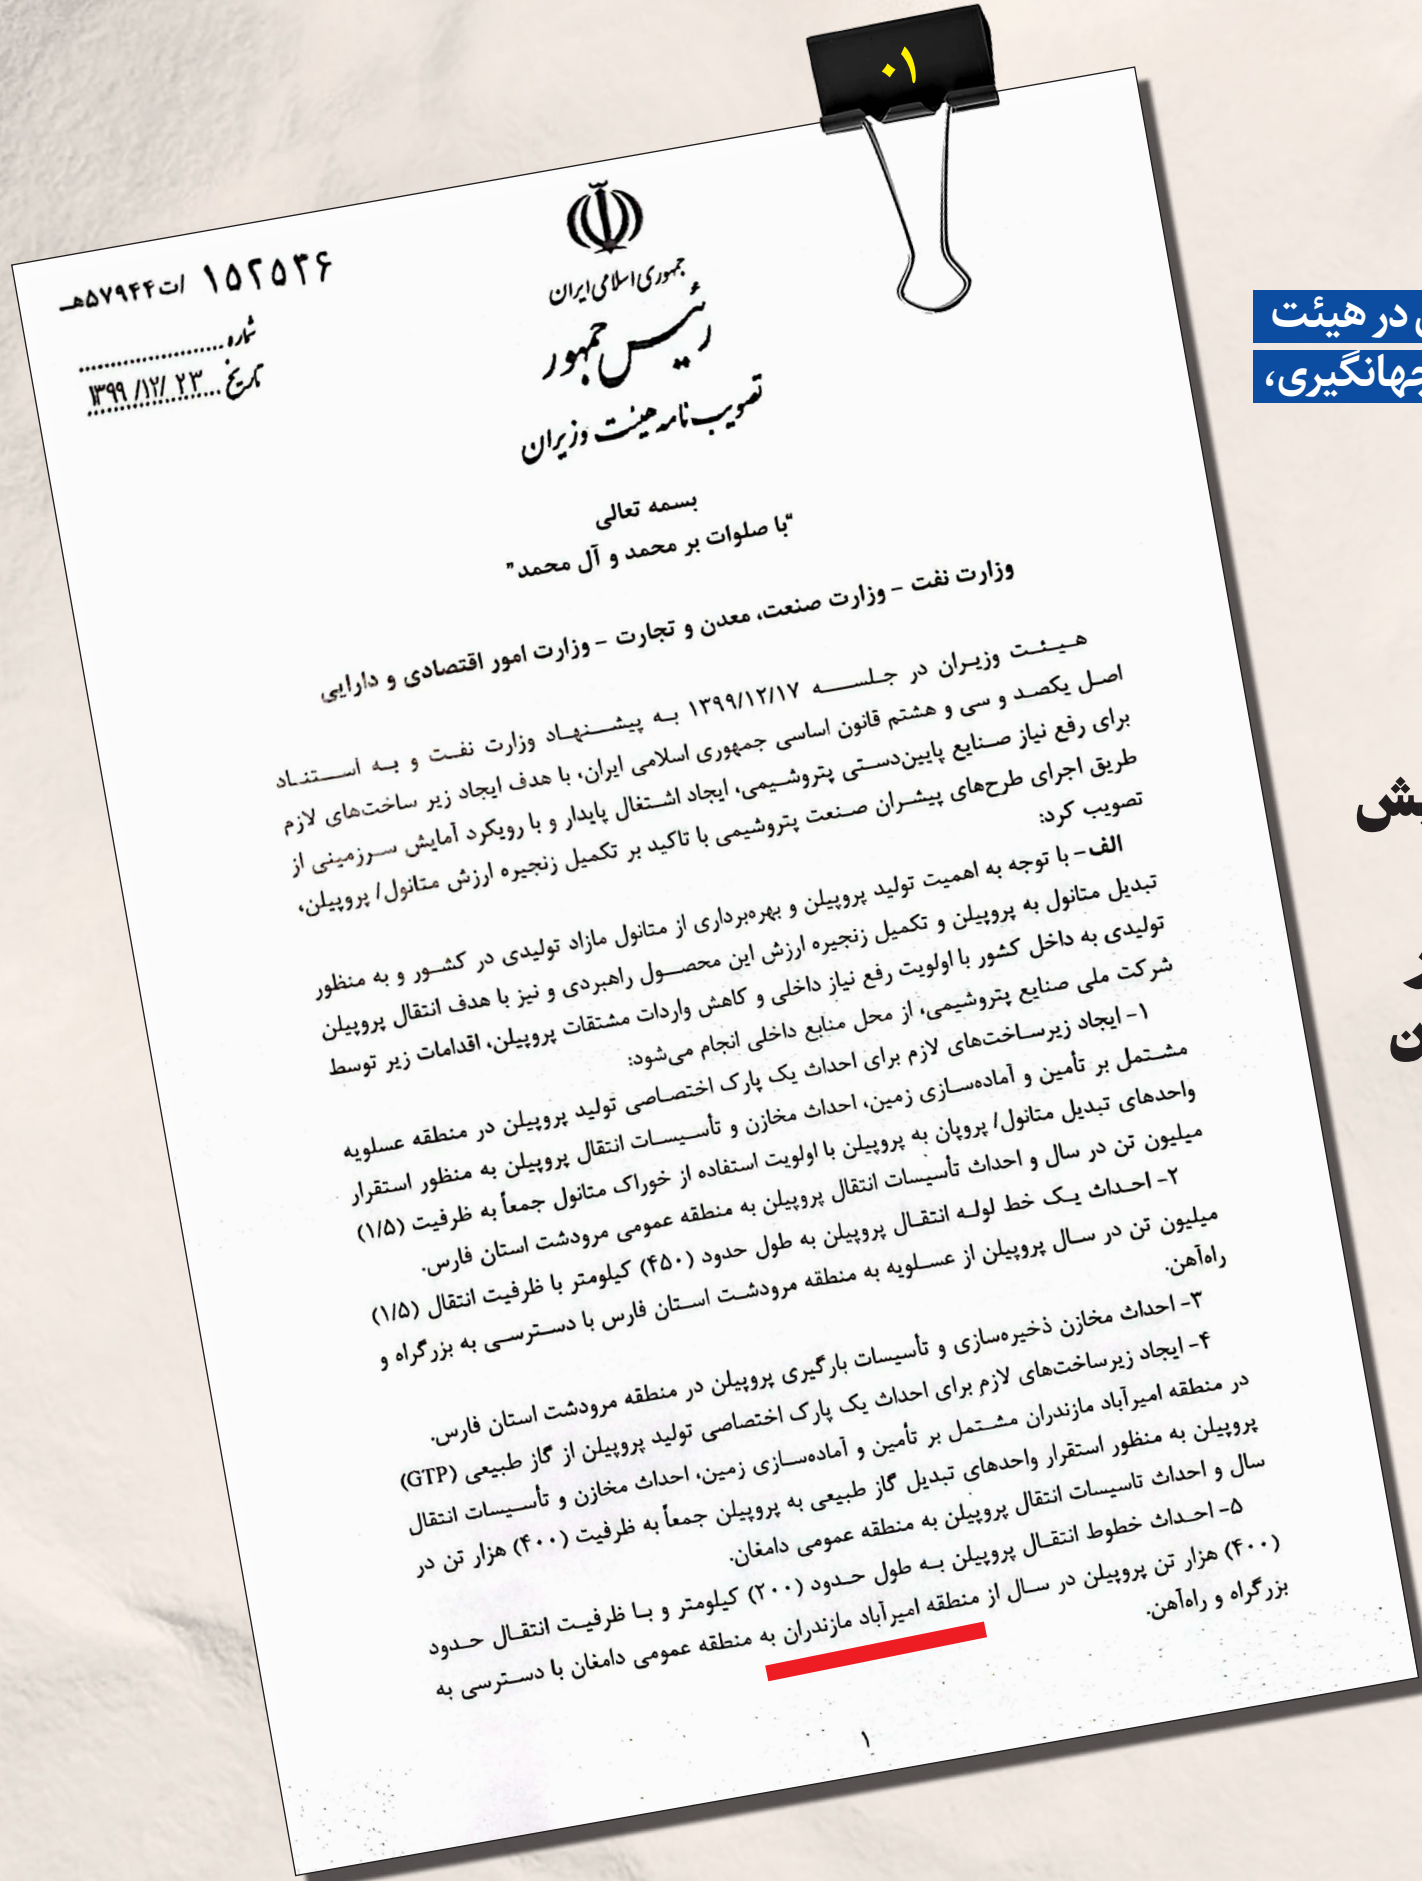 ۰۱
جمهوری اسلامی ایران
رئیس جمهور
تصویب‌نامه هیئت وزیران
۱۵۲۵۳۶ /ت۵۷۹۴۴هـ
شماره
تاریخ ۱۳۹۹/۱۲/۲۳
بسمه تعالی
"با صلوات بر محمد و آل محمد"
وزارت نفت – وزارت صنعت، معدن و تجارت – وزارت امور اقتصادی و دارایی
هیئت وزیران در جلسه ۱۳۹۹/۱۲/۱۷ به پیشنهاد وزارت نفت و به استناد
اصل یکصد و سی و هشتم قانون اساسی جمهوری اسلامی ایران، با هدف ایجاد زیر ساخت‌های لازم
برای رفع نیاز صنایع پایین‌دستی پتروشیمی، ایجاد اشتغال پایدار و با رویکرد آمایش سرزمینی از
طریق اجرای طرح‌های پیشران صنعت پتروشیمی با تاکید بر تکمیل زنجیره ارزش متانول/ پروپیلن،
تصویب کرد:
الف– با توجه به اهمیت تولید پروپیلن و بهره‌برداری از متانول مازاد تولیدی در کشور و به منظور
تبدیل متانول به پروپیلن و تکمیل زنجیره ارزش این محصول راهبردی و نیز با هدف انتقال پروپیلن
تولیدی به داخل کشور با اولویت رفع نیاز داخلی و کاهش واردات مشتقات پروپیلن، اقدامات زیر توسط
شرکت ملی صنایع پتروشیمی، از محل منابع داخلی انجام می‌شود:
۱– ایجاد زیرساخت‌های لازم برای احداث یک پارک اختصاصی تولید پروپیلن در منطقه عسلویه
مشتمل بر تأمین و آماده‌سازی زمین، احداث مخازن و تأسیسات انتقال پروپیلن به منظور استقرار
واحدهای تبدیل متانول/ پروپان به پروپیلن با اولویت استفاده از خوراک متانول جمعاً به ظرفیت (۱/۵)
میلیون تن در سال و احداث تأسیسات انتقال پروپیلن به منطقه عمومی مرودشت استان فارس.
۲– احداث یک خط لوله انتقال پروپیلن به طول حدود (۴۵۰) کیلومتر با ظرفیت انتقال (۱/۵)
میلیون تن در سال پروپیلن از عسلویه به منطقه مرودشت استان فارس با دسترسی به بزرگراه و
راه‌آهن.
۳– احداث مخازن ذخیره‌سازی و تأسیسات بارگیری پروپیلن در منطقه مرودشت استان فارس.
۴– ایجاد زیرساخت‌های لازم برای احداث یک پارک اختصاصی تولید پروپیلن از گاز طبیعی (GTP)
در منطقه امیرآباد مازندران مشتمل بر تأمین و آماده‌سازی زمین، احداث مخازن و تأسیسات انتقال
پروپیلن به منظور استقرار واحدهای تبدیل گاز طبیعی به پروپیلن جمعاً به ظرفیت (۴۰۰) هزار تن در
سال و احداث تاسیسات انتقال پروپیلن به منطقه عمومی دامغان.
۵– احداث خطوط انتقال پروپیلن به طول حدود (۲۰۰) کیلومتر و با ظرفیت انتقال حدود
(۴۰۰) هزار تن پروپیلن در سال از منطقه امیرآباد مازندران به منطقه عمومی دامغان با دسترسی به
بزرگراه و راه‌آهن.
۱
در هیئت
جهانگیری،